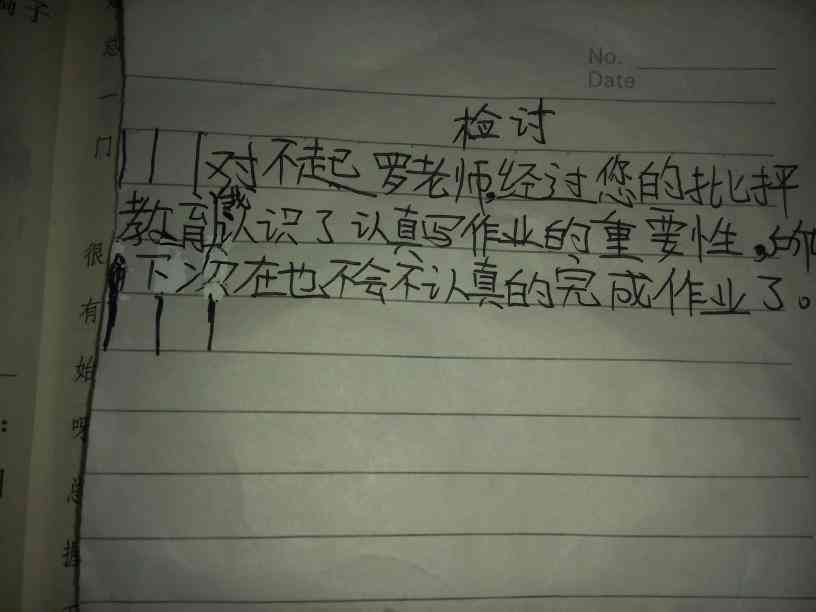 No.
Date
检讨
对不起罗老师,经过您的批抨
教育我认识了认真写作业的重要性,
下次在也不会不认真的完成作业了。
总
一
门
很
有
始
呀
总
握